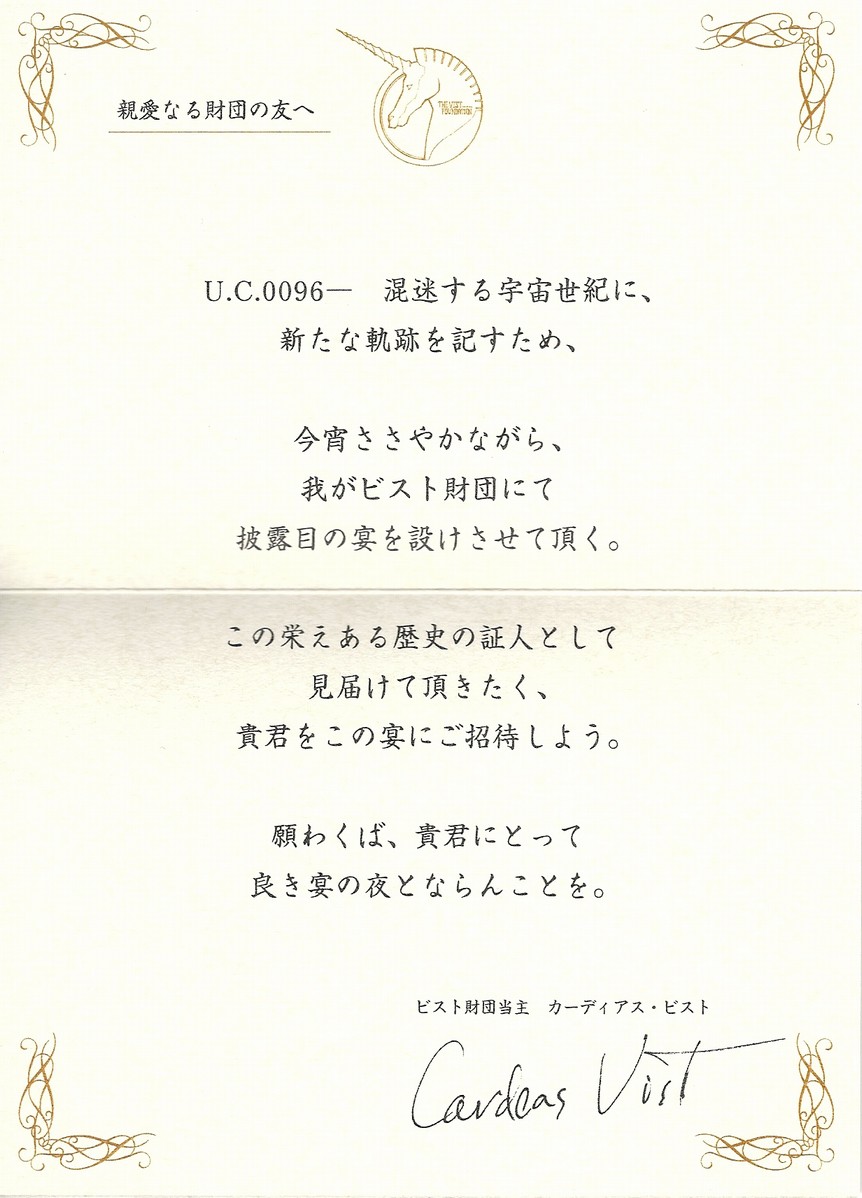 親愛なる財団の友へ
THE VIST
FOUNDATION
U.C.0096― 混迷する宇宙世紀に、
新たな軌跡を記すため、
今宵ささやかながら、
我がビスト財団にて
披露目の宴を設けさせて頂く。
この栄えある歴史の証人として
見届けて頂きたく、
貴君をこの宴にご招待しよう。
願わくば、貴君にとって
良き宴の夜とならんことを。
ビスト財団当主 カーディアス・ビスト
Cardeas Vist